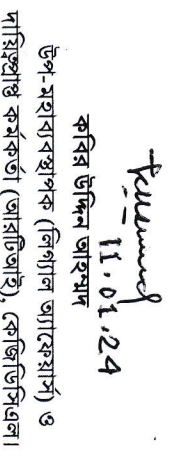 11.01.24
কবির উদ্দিন আহম্মদ
উপ-মহাব্যবস্থাপক (লিগ্যাল অ্যাফেয়ার্স) ও
দায়িত্বপ্রাপ্ত কর্মকর্তা (আরটিআই), কেজিডিসিএল।